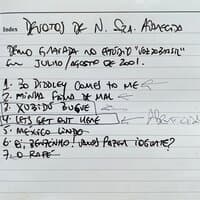 Index DEVOTOS DE N. SRA. APARECIDA
DEMO GRAVADA NO ESTÚDIO "VOZDOBRASIL"
EM JULHO/AGOSTO DE 2001.
1. BO DIDDLEY COMES TO ME
2. MINHA FAMA DE MAU
3. XUBIDU BUGUE
4. LETS GET OUT HERE
5. MEXICO LINDO
6. EI, BENZINHO! VAMOS FAZER IOGURTE?
7. O RAFE